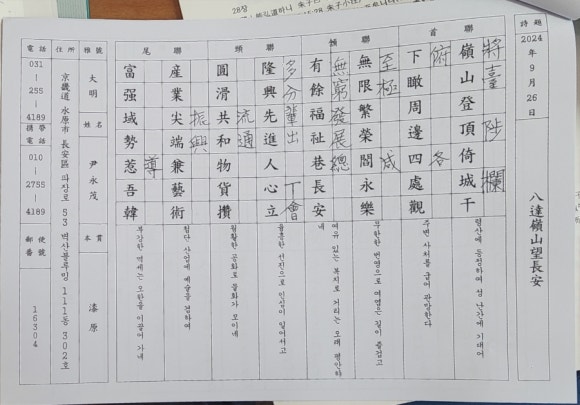 詩題
2024年 9月 26日
八達嶺山望長安
首聯
嶺山登頂倚城干
將臺 陟 欄
령산에 등정하여 성 난간에 기대어
下瞰周邊四處觀
俯 各
주변 사처를 굽어 관망한다
頷聯
無限繁榮閭永樂
至極 咸
무한한 번영으로 여염은 길이 즐겁고
有餘福祉巷長安
無窮發展總
여유 있는 복지로 거리는 오래 평안하네
頸聯
隆興先進人心立
多分輩出 丁會
융흥한 선진으로 인심이 일어서고
圓滑共和物貨攢
流通
원활한 공화로 물화가 모이네
尾聯
産業尖端兼藝術
振興
첨단 산업에 예술을 겸하여
富强域勢惹吾韓
導
부강한 역세는 오한을 이끌어 가네
雅號
大明
姓名
尹永茂
本貫
漆原
住所
京畿道 水原市 長安區 파장로 53 벽산블루밍 111동 302호
電話
031-255-4189
携帶電話
010-2755-4189
郵便番號
16304